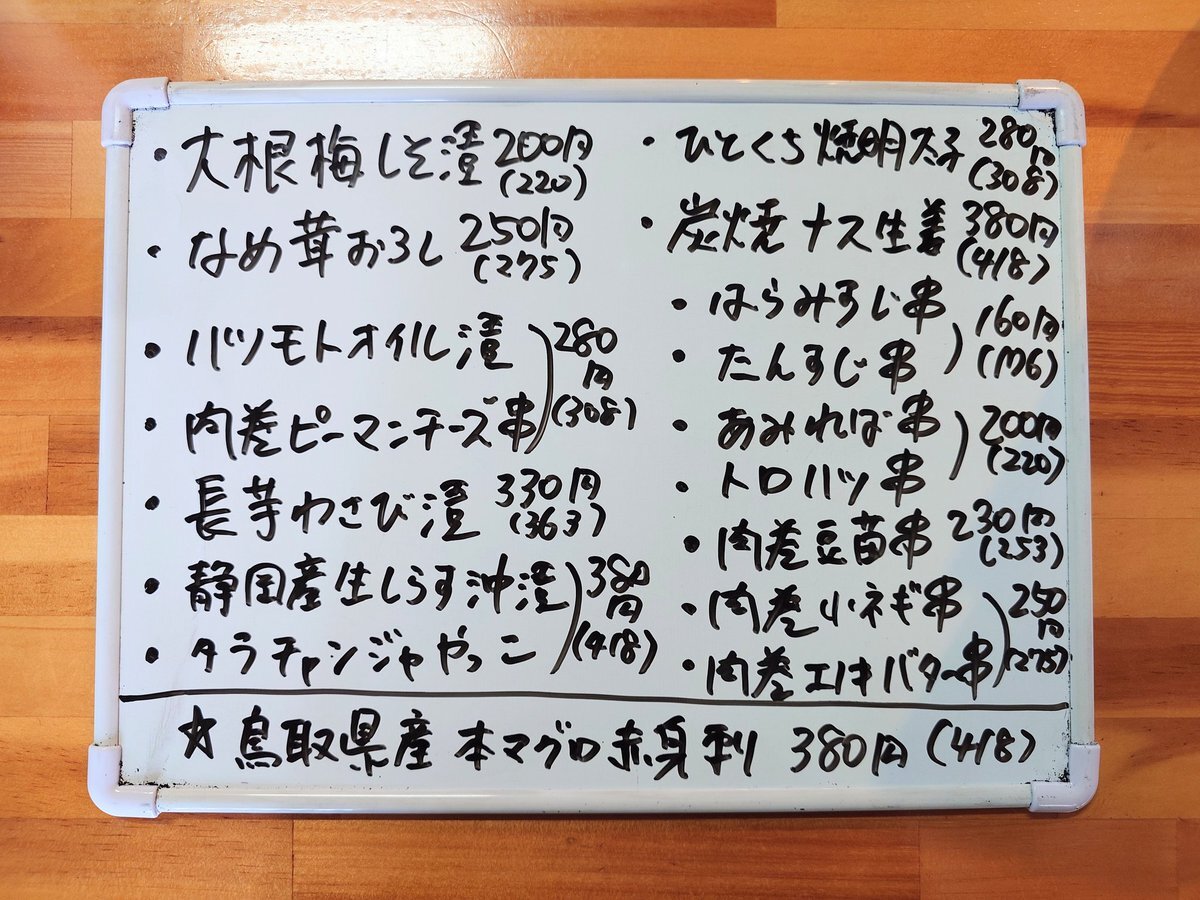 ・大根梅しそ漬 200円 (220)
・なめ茸おろし 250円 (275)
・ハツモトオイル漬
・肉巻ピーマンチーズ串 280円 (308)
・長芋わさび漬 330円 (363)
・静岡産生しらす沖漬
・タラチャンジャやっこ 380円 (418)
・ひとくち焼明太子 280円 (308)
・炭焼ナス生姜 380円 (418)
・はらみすじ串
・たんすじ串 160円 (176)
・あみればー串 200円 (220)
・トロハツ串
・肉巻豆苗串 230円 (253)
・肉巻小ネギ串
・肉巻エノキバター串 250円 (275)
☆鳥取県産 本マグロ赤身刺 380円 (418)